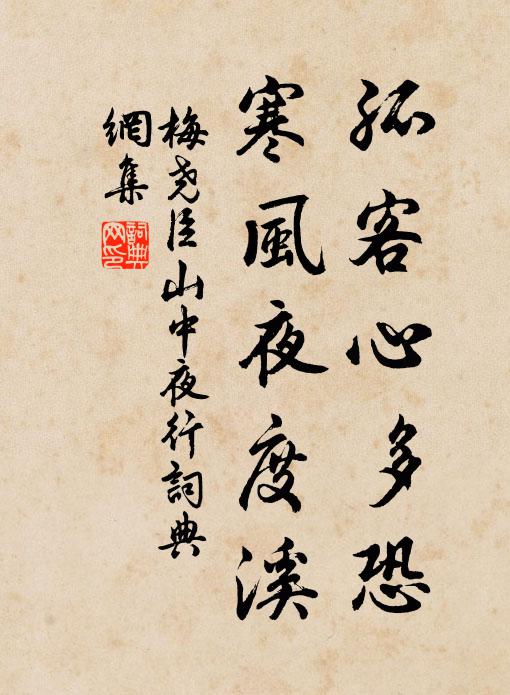 孤客心多恐
寒風夜度溪
梅尧臣山中夜行詞典
網集
詞典
网印